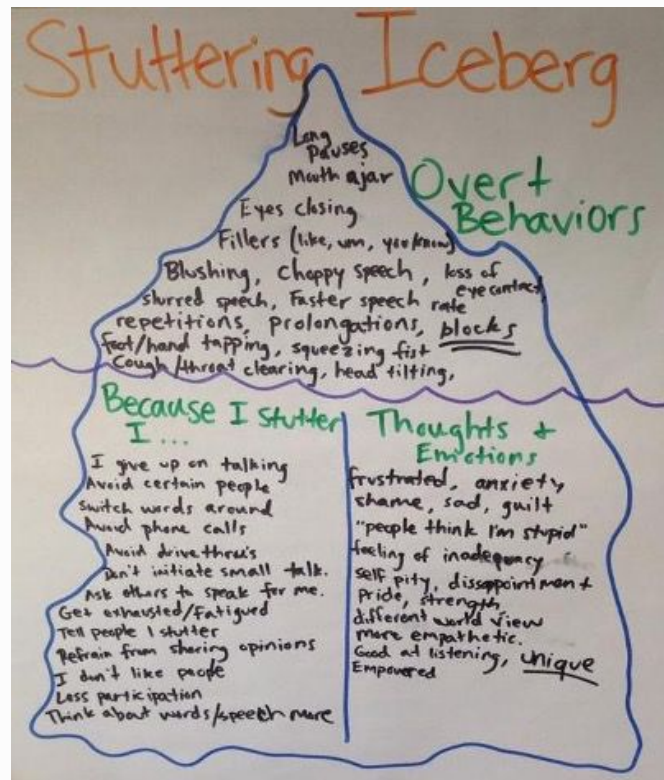 Stuttering Iceberg
Long
Pauses
Mouth ajar
Overt
Behaviors
Eyes closing
Fillers (like, um, you know)
Blushing, choppy speech, loss of
eye contact,
slurred speech, Faster speech rate
repetitions, prolongations, blocks
foot/hand tapping, squeezing fist
Cough/throat clearing, head tilting,
Because I Stutter
I ...
I give up on talking
Avoid certain people
Switch words around
Avoid phone calls
Avoid drive thru's
Don't initiate small talk.
Ask others to speak for me.
Get exhausted/fatigued
Tell people I stutter
Refrain from sharing opinions
I don't like people
Less participation
Think about words/speech more
Thoughts +
Emotions
frustrated, anxiety
shame, sad, guilt
"people think I'm stupid"
feeling of inadequacy
self pity, dissapointment
Pride, strength,
different world view
more empathetic.
Good at listening, unique
Empowered